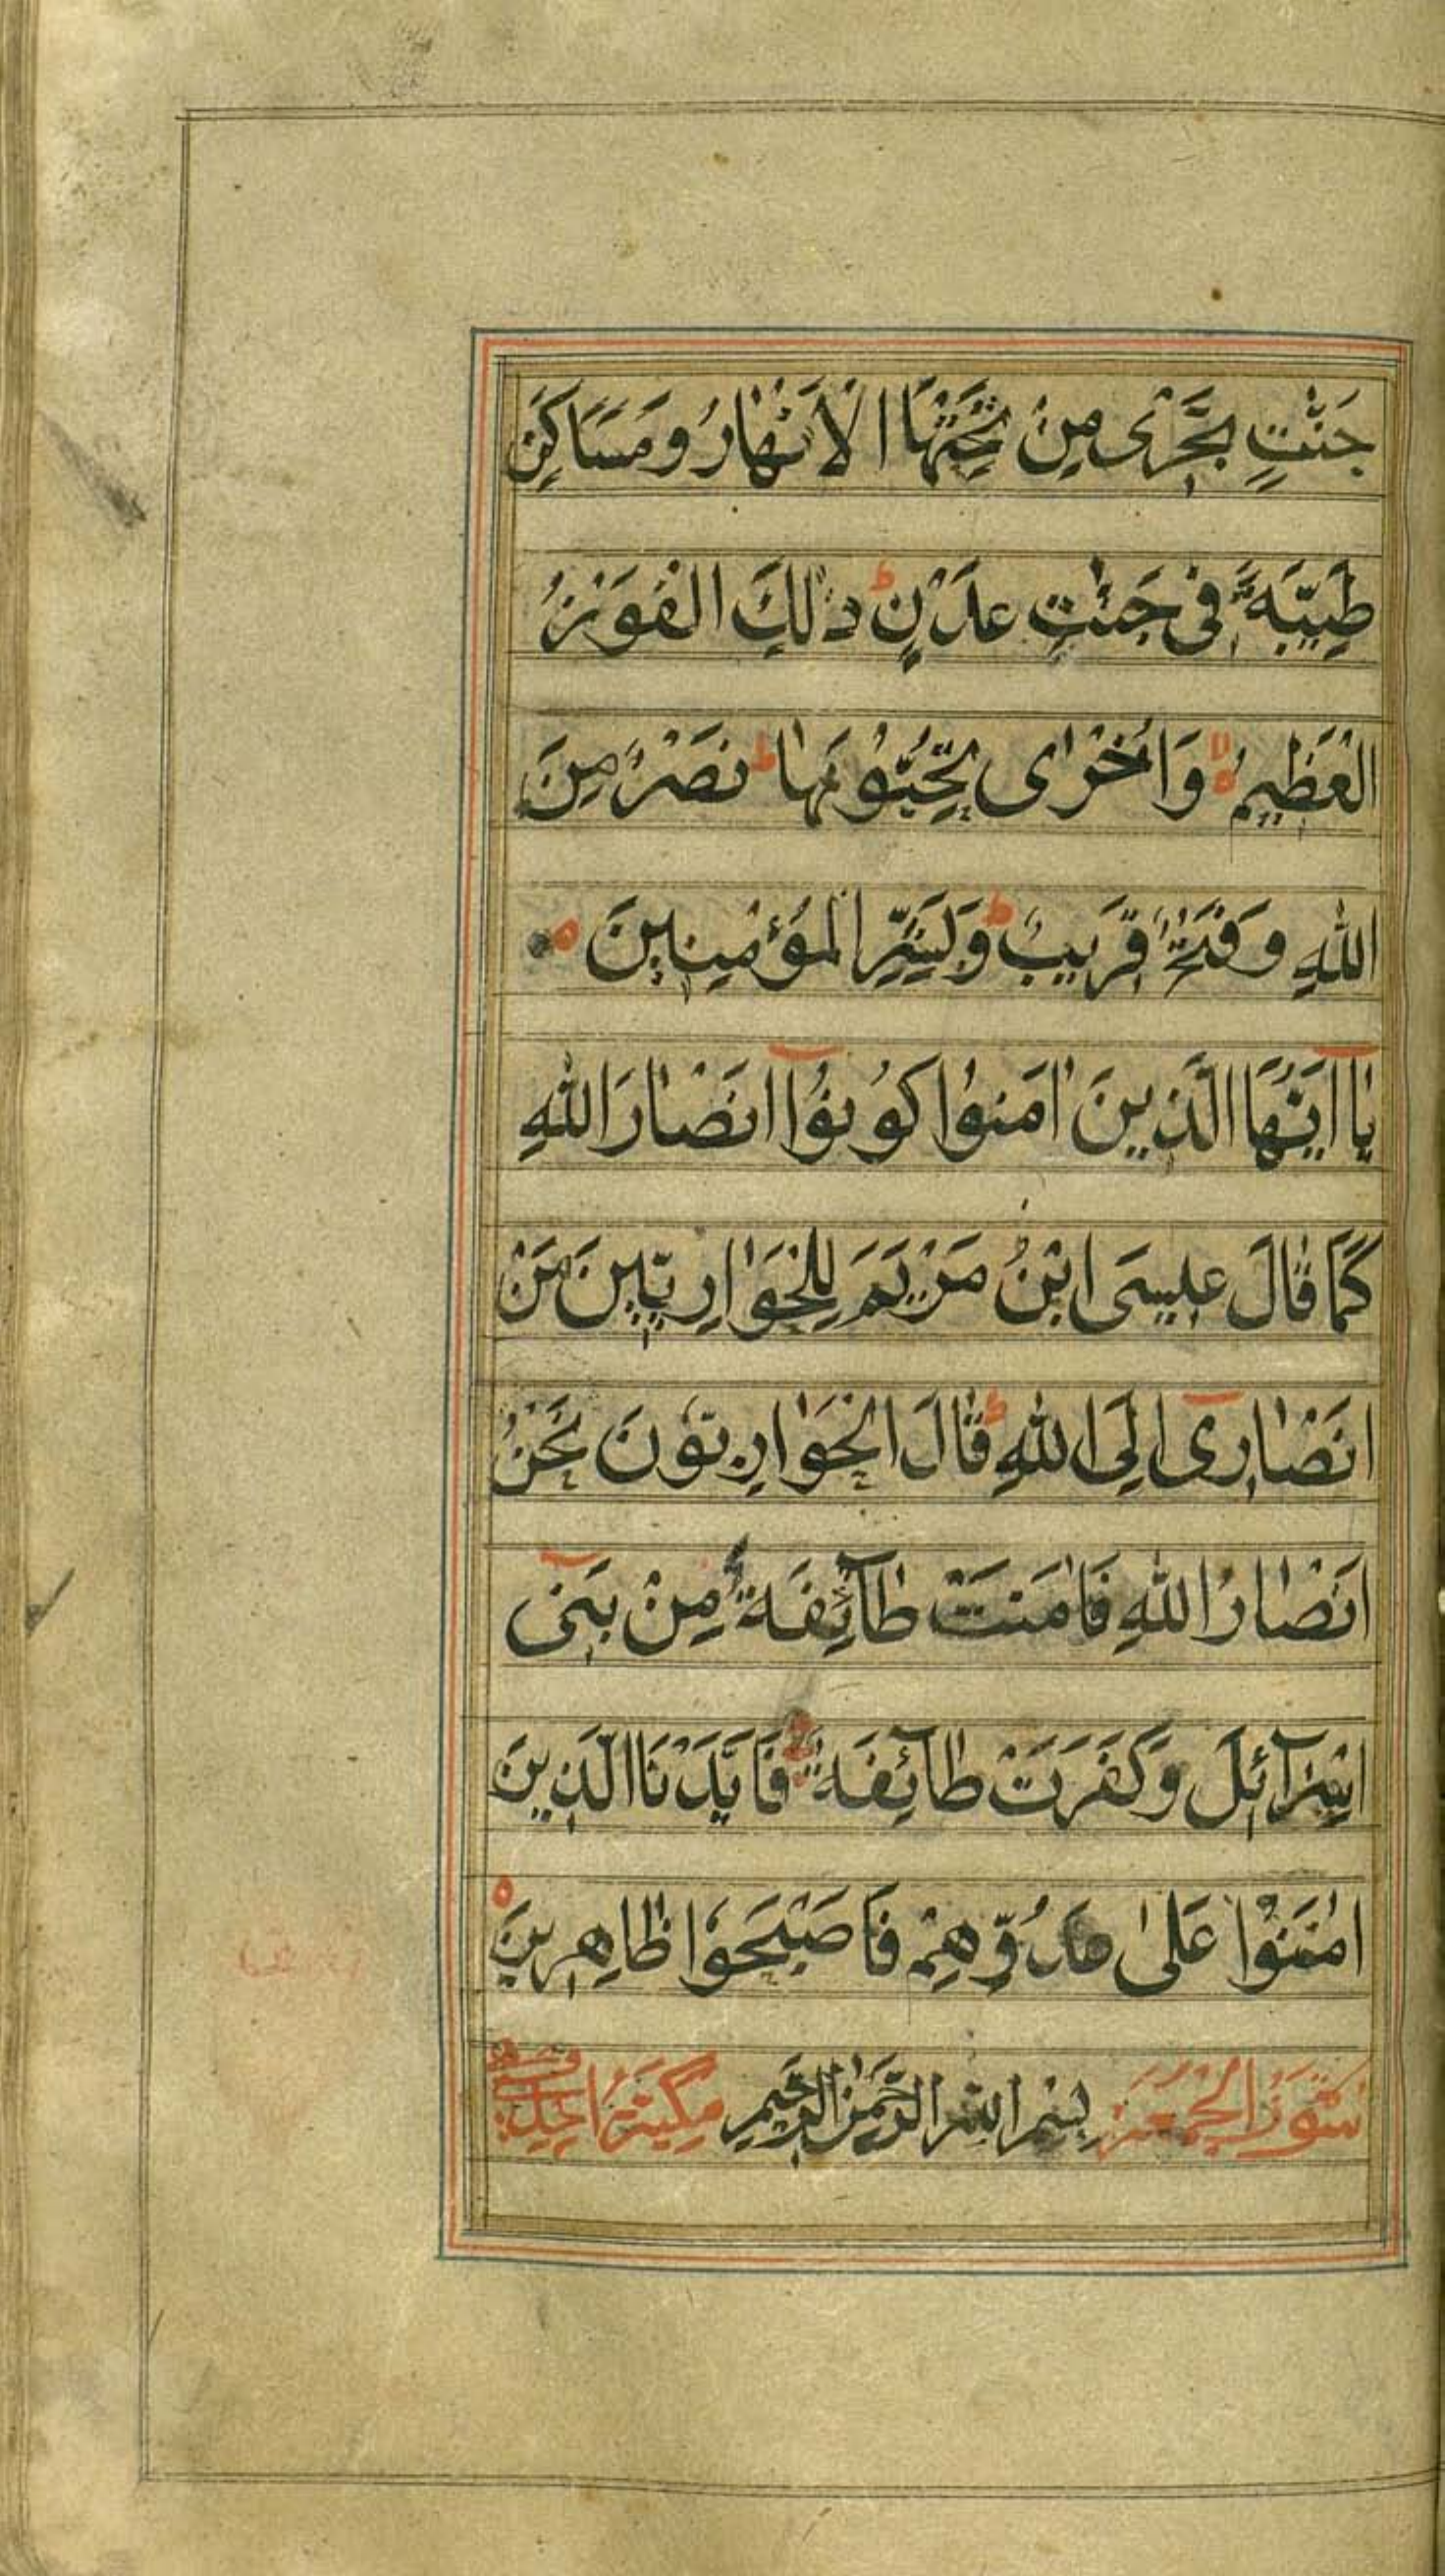 جَنّٰتٍ تَجْرٰى مِنْ تَحْتِهَا الْاَنْهٰارُ وَمَسَاكِنَ
طَيِّبَةً فى جَنّٰتِ عَدْنٍ ط ذٰلِكَ الْفَوْزُ
الْعَظٖيمُ وَاُخْرٰى تُحِبُّونَهٰا ط نَصْرٌ مِنَ
اللّٰهِ وَفَتْحٌ قَرٖيبٌ ط وَبَشِّرِ الْمُؤْمِنٖينَ
يٰآ اَيُّهَا الَّذٖينَ اٰمَنُوا كُونُوٓا اَنْصٰارَ اللّٰهِ
كَمٰا قٰالَ عٖيسَى ابْنُ مَرْيَمَ لِلْحَوٰارِيّٖينَ مَنْ
اَنْصٰارٖىٓ اِلَى اللّٰهِ ط قٰالَ الْحَوٰارِيُّونَ نَحْنُ
اَنْصٰارُ اللّٰهِ فَاٰمَنَتْ طٰآئِفَةٌ مِنْ بَنٖىٓ
اِسْرٰآئٖلَ وَكَفَرَتْ طٰآئِفَةٌ فَاَيَّدْنَا الَّذٖينَ
اٰمَنُوْا عَلٰى عَدُوِّهِمْ فَاَصْبَحُوْا ظٰاهِرٖينَ
سُوْرَةُ الْجُمُعَةِ بِسْمِ اللّٰهِ الرَّحْمٰنِ الرَّحٖيمِ مَكِّيَّةٌ